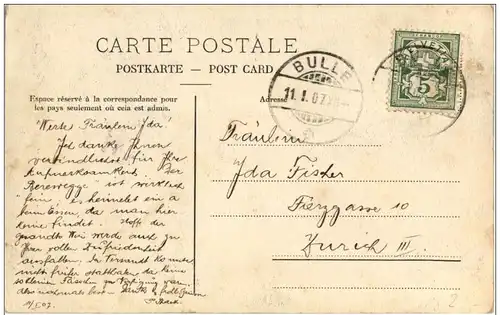 CARTE POSTALE
POSTKARTE — POST CARD
Espace réservé à la correspondance pour
les pays seulement où cela est admis.
Adresse
BULLE
11.I.07
HELVETIA
5
Werte Fräulein Ida!
Ich danke Ihnen
verbindlichst für Ihre
Aufmerksamkeit. Der
ist wirklich
fein, es heimelet ein a
da man hier
keine findet. Hoff der
gesandte Wii werde auch zu
Ihrer vollen Zufriedenheit
ausfallen. Im Versandt
nicht früher statthaben da keine
zur Verfügung waren.
Fräulein
Ida Fischer
10
Zürich III.